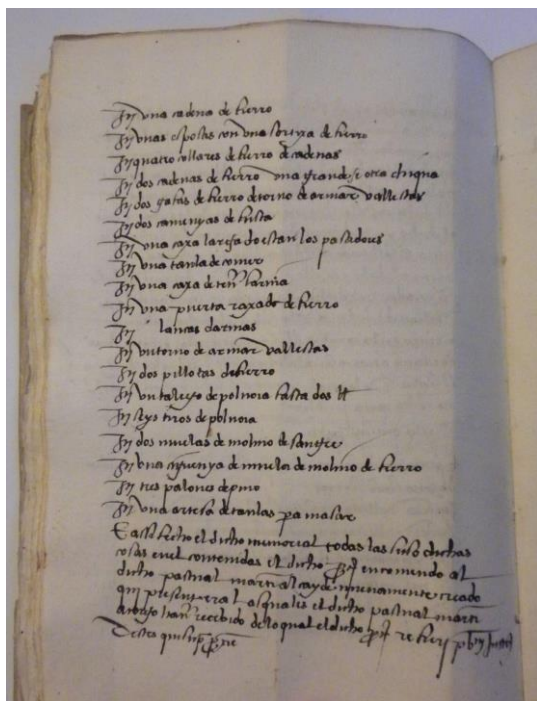 Jtē una cadena de hierro
Jtē unas esposas con una sortixa de hierro
Jtē quatro collares de hierro de cadenas
Jtē dos cadenas de hierro una grande et otra chiqua
Jtē dos gafas de hierro de torno de armar vallestas
Jtē dos camenyas de fusta
Jtē una caxa larga do estan los pasadores
Jtē una taula de comer
Jtē una caxa de tener farina
Jtē una puerta raxado de hierro
Jtē lancas darmas
Jtē un torno de armar vallestas
Jtē dos pillotas de hierro
Jtē un talego de polvora fasta dos
Jtē seys tiros de polvora
Jtē dos muelas de molino de sangre
Jtē una ciguenya de muela de molino de hierro
Jtē tres palones de pino
Jtē una artesa de taulas pa masar
E assi fecho el dicho memorial todas las suso dichas
cosas en el contenidas el dicho encomendo al
dicho pascual marti alcayde nuevamente creado
qui present era las quales el dicho pascual marti
atorgo haver recebido de lo qual el dicho